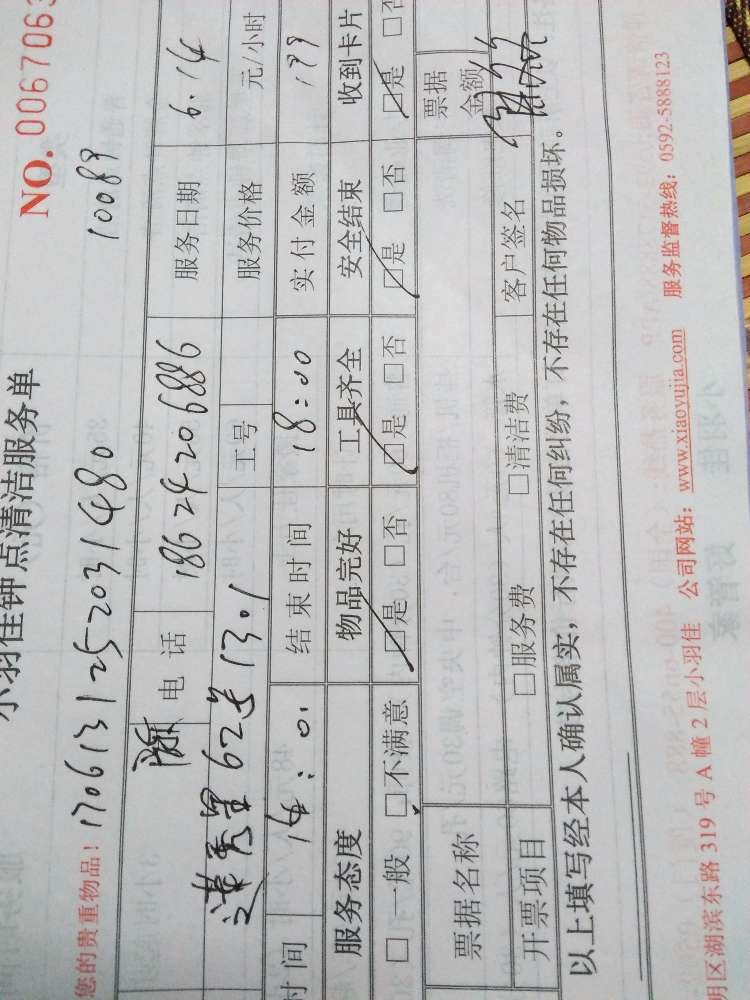 小羽佳钟点清洁服务单
NO. 0067063
您的贵重物品! 1706131252031480 10089
电话 18624206886 服务日期 6.14
62 1301 工号 服务价格 元/小时
时间 14:01 结束时间 18:00 实付金额 199
服务态度 物品完好 工具齐全 安全结束 收到卡片
□一般 □不满意 □是 □否 □是 □否 □是 □否 □是 □否
票据名称 票据金额
开票项目 □服务费 □清洁费 客户签名
以上填写经本人确认属实，不存在任何纠纷，不存在任何物品损坏。
明区湖滨东路 319 号 A 幢 2 层小羽佳 公司网站：www.xiaoyujia.com 服务监督热线：0592-5888123